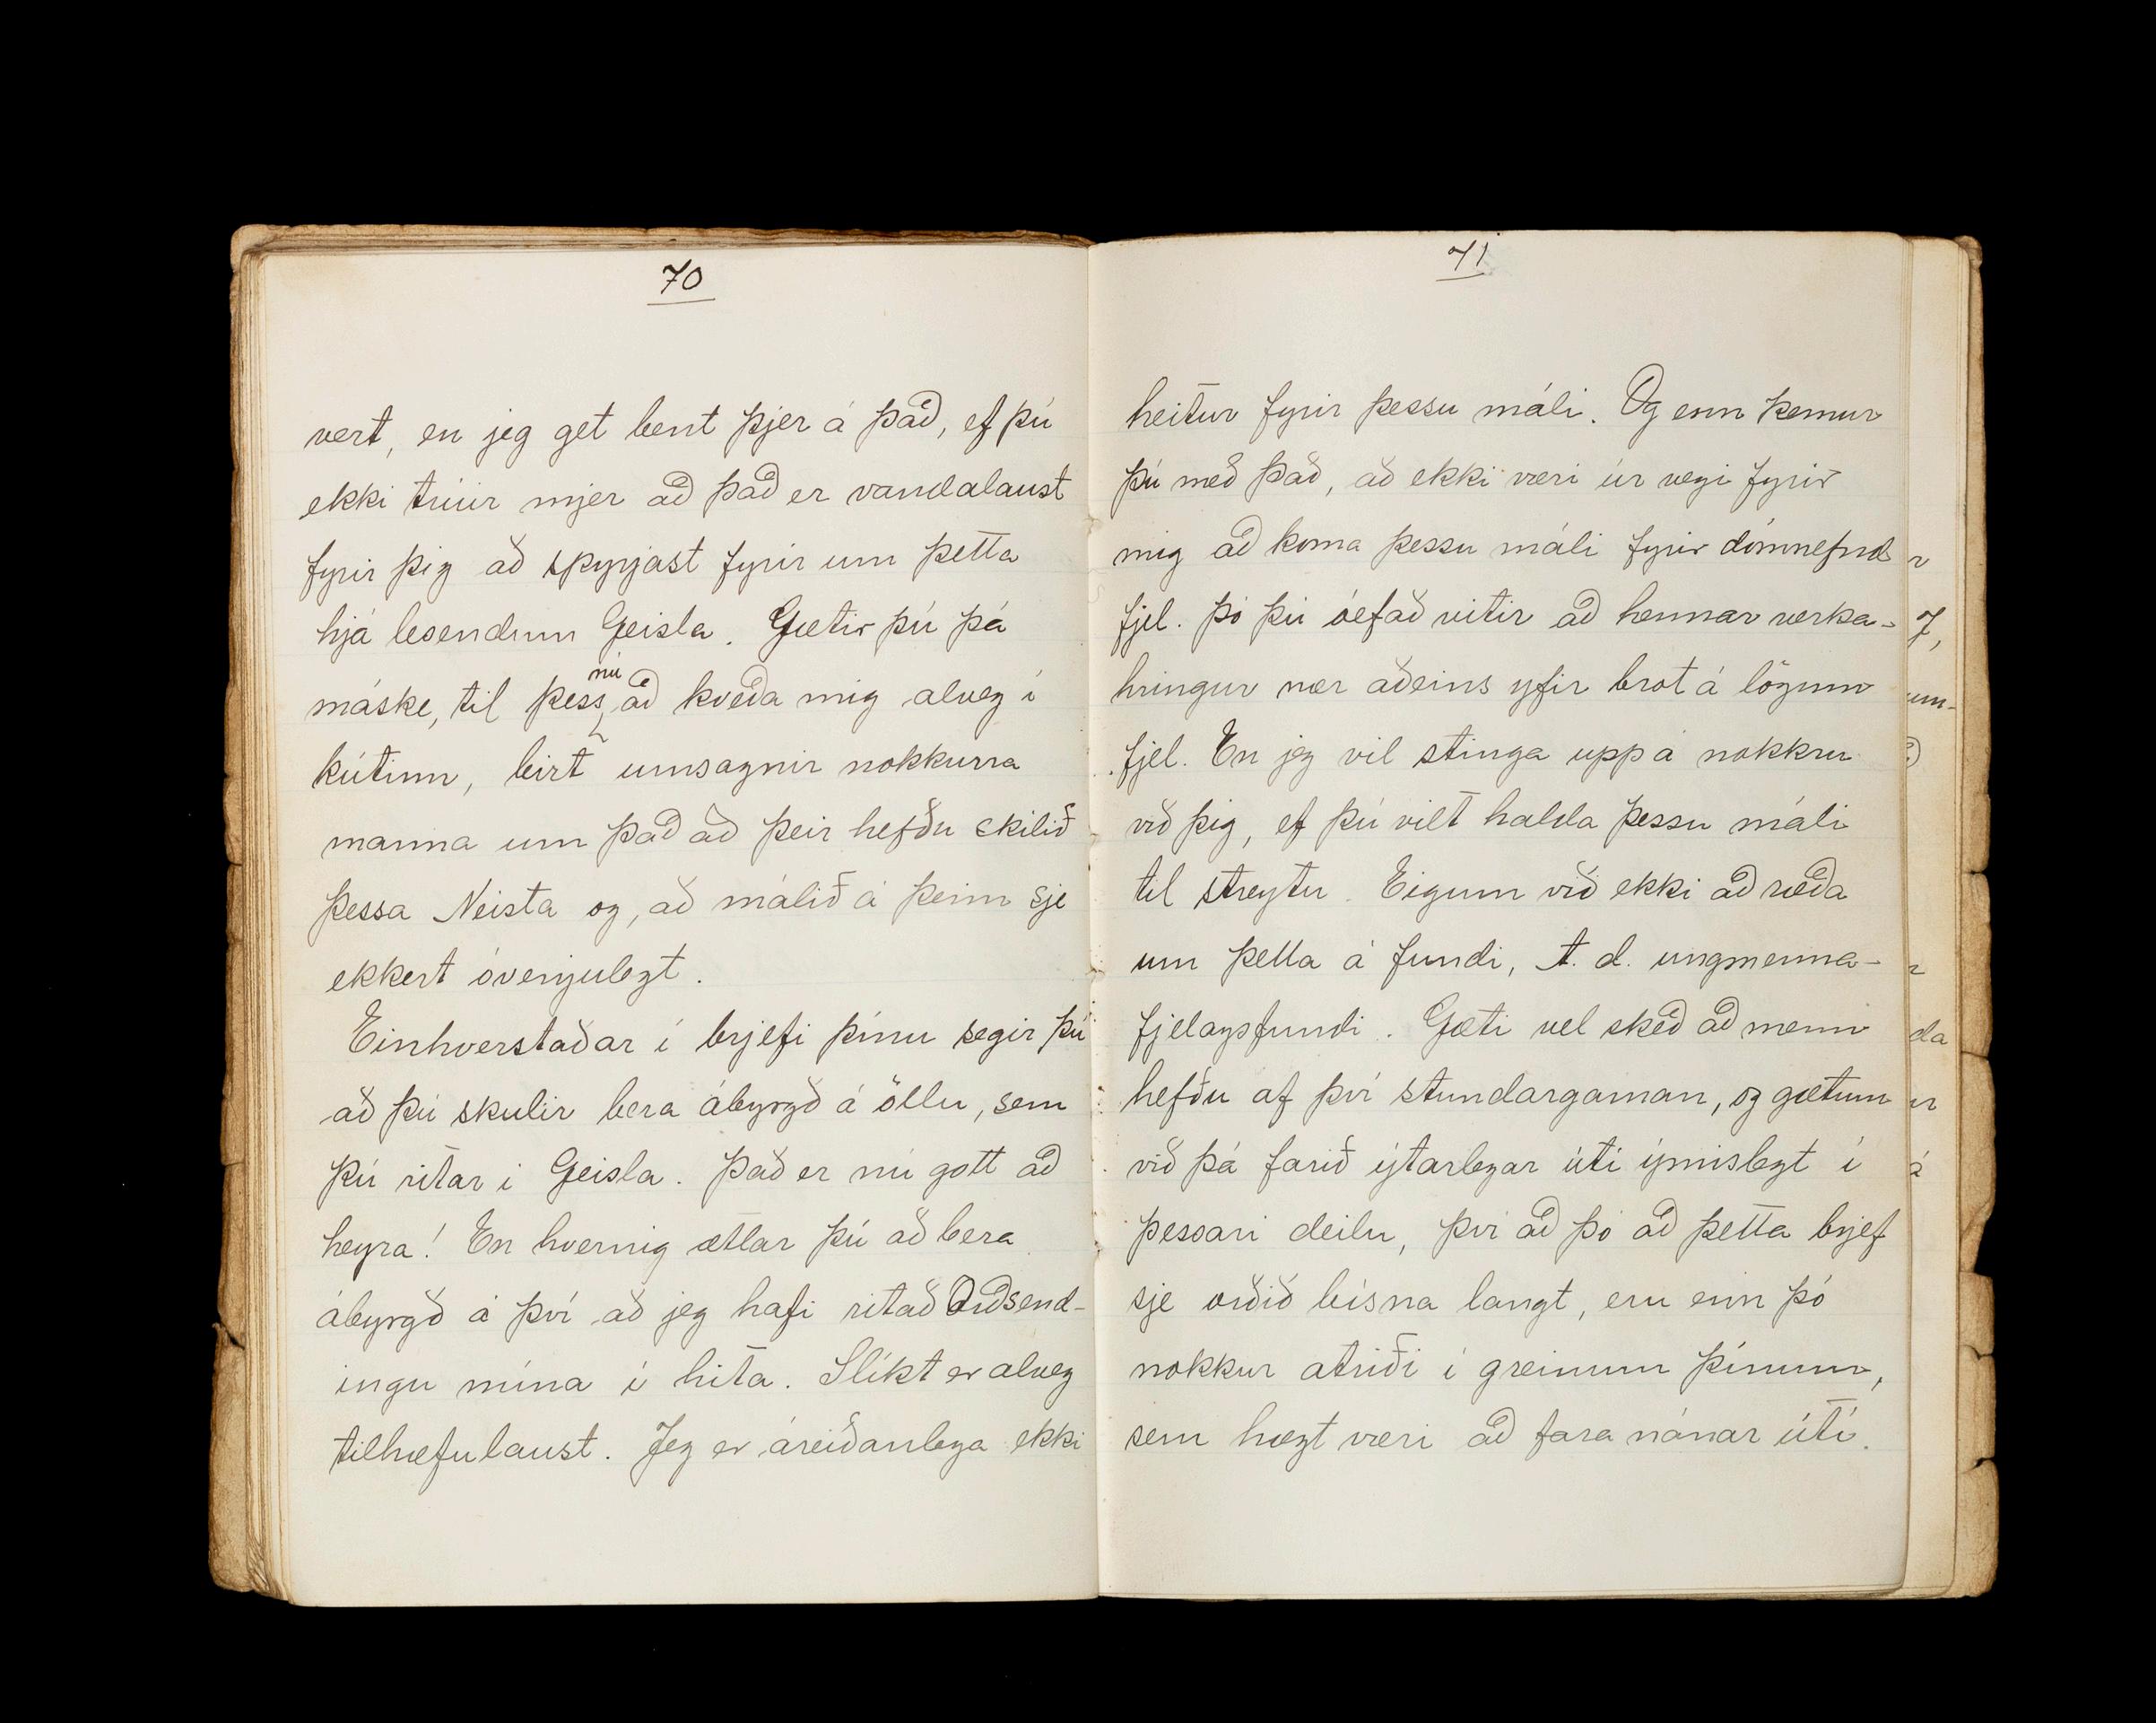 70
vert, en jeg get bent þjer á það, ef þú
ekki trúir mjer að það er vandalaust
fyrir þig að spyrjast fyrir um þetta
hjá lesendum Geisla. Gætir þú þá
máske, til þess nú að kveða mig alveg í
kútinn, birt umsagnir nokkurra
manna um það að þeir hefðu skilið
þessa Neista og, að málið á þeim sje
ekkert óvenjulegt.
Einhverstaðar í brjefi þínu segir þú
að þú skulir bera ábyrgð á öllu, sem
þú ritar í Geisla. Það er nú gott að
heyra! En hvernig ætlar þú að bera
ábyrgð á því að jeg hafi ritað Orðsend-
ingu mína í hita. Slíkt er alveg
tilhæfulaust. Jeg er áreiðanlega ekki
71
heitur fyrir þessu máli. Og enn kemur
þú með það, að ekki væri úr vegi fyrir
mig að koma þessu máli fyrir dómnefnd
fjel. þó þú óefað vitir að hennar verka-
hringur nær aðeins yfir brot á lögum
fjel. En jeg vil stinga uppá nokkru
við þig, ef þú vilt halda þessu máli
til streytu. Eigum við ekki að ræða
um þetta á fundi, t.d. ungmenna-
fjelagsfundi. Gæti vel skeð að menn
hefðu af því stundargaman, og gætum
við þá farið ýtarlegar útí ýmislegt í
þessari deilu, því að þó að þetta brjef
sje orðið býsna langt, eru enn þó
nokkur atriði í greinum þínum,
sem hægt væri að fara nánar útí.